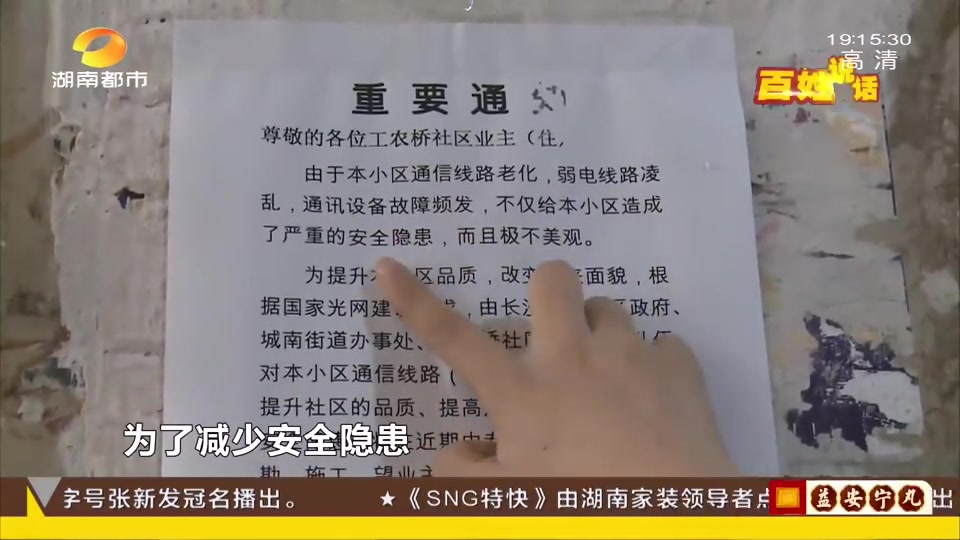 湖南都市
19:15:30
高清
百姓说话
重要通
尊敬的各位工农桥社区业主（住,
由于本小区通信线路老化，弱电线路凌
乱，通讯设备故障频发，不仅给本小区造成
了严重的安全隐患，而且极不美观。
为提升 区品质，改 面貌，根
据国家光网建 ，由长 政府、
城南街道办事处、 桥社
对本小区通信线路（
提升社区的品质、提高
近期由
勘、施工，望业主
为了减少安全隐患
字号张新发冠名播出。 ★《SNG特快》由湖南家装领导者点 益安宁丸 出